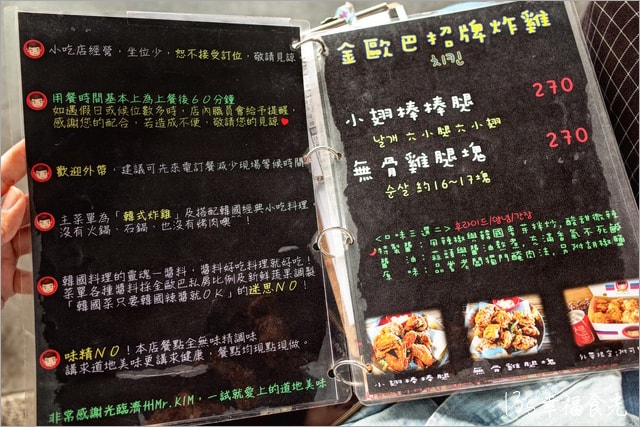 小吃店經營，坐位少，恕不接受訂位，敬請見諒
用餐時間基本上為上餐後60分鐘
如遇假日或候位數多時，店內職員會給予提醒，
感謝您的配合，若造成不便，敬請您的見諒❤
歡迎外帶，建議可先來電訂餐減少現場等候時間
主菜單為「韓式炸雞」及搭配韓國經典小吃料理
沒有火鍋、石鍋，也沒有烤肉噢！！
韓國料理的靈魂－醬料，醬料好吃料理就好吃！
菜單各種醬料採金歐巴私房比例及新鮮蔬果調製
「韓國菜只要韓國辣醬就OK」的迷思NO！
味精NO！本店餐點全無味精調味
講求道地美味更講求健康，餐點均現點現做。
非常感謝光臨濟州Mr.KIM，一試就愛上的道地美味
金歐巴招牌炸雞
치킨
270
小翅棒棒腿
날개 六小腿六小翅
270
無骨雞腿塊
순살 約16~17塊
<口味三選一> 후라이드/양념/간장
特製醬：用辣椒與韓國麥芽拌炒，酸甜微辣
醬油：蒜頭與醬油熬煮，大滿香氣不死鹹
原味：品嘗老闆獨門醃肉法，另附胡椒鹽
小翅棒棒腿
無骨雞腿塊
134幸福食光